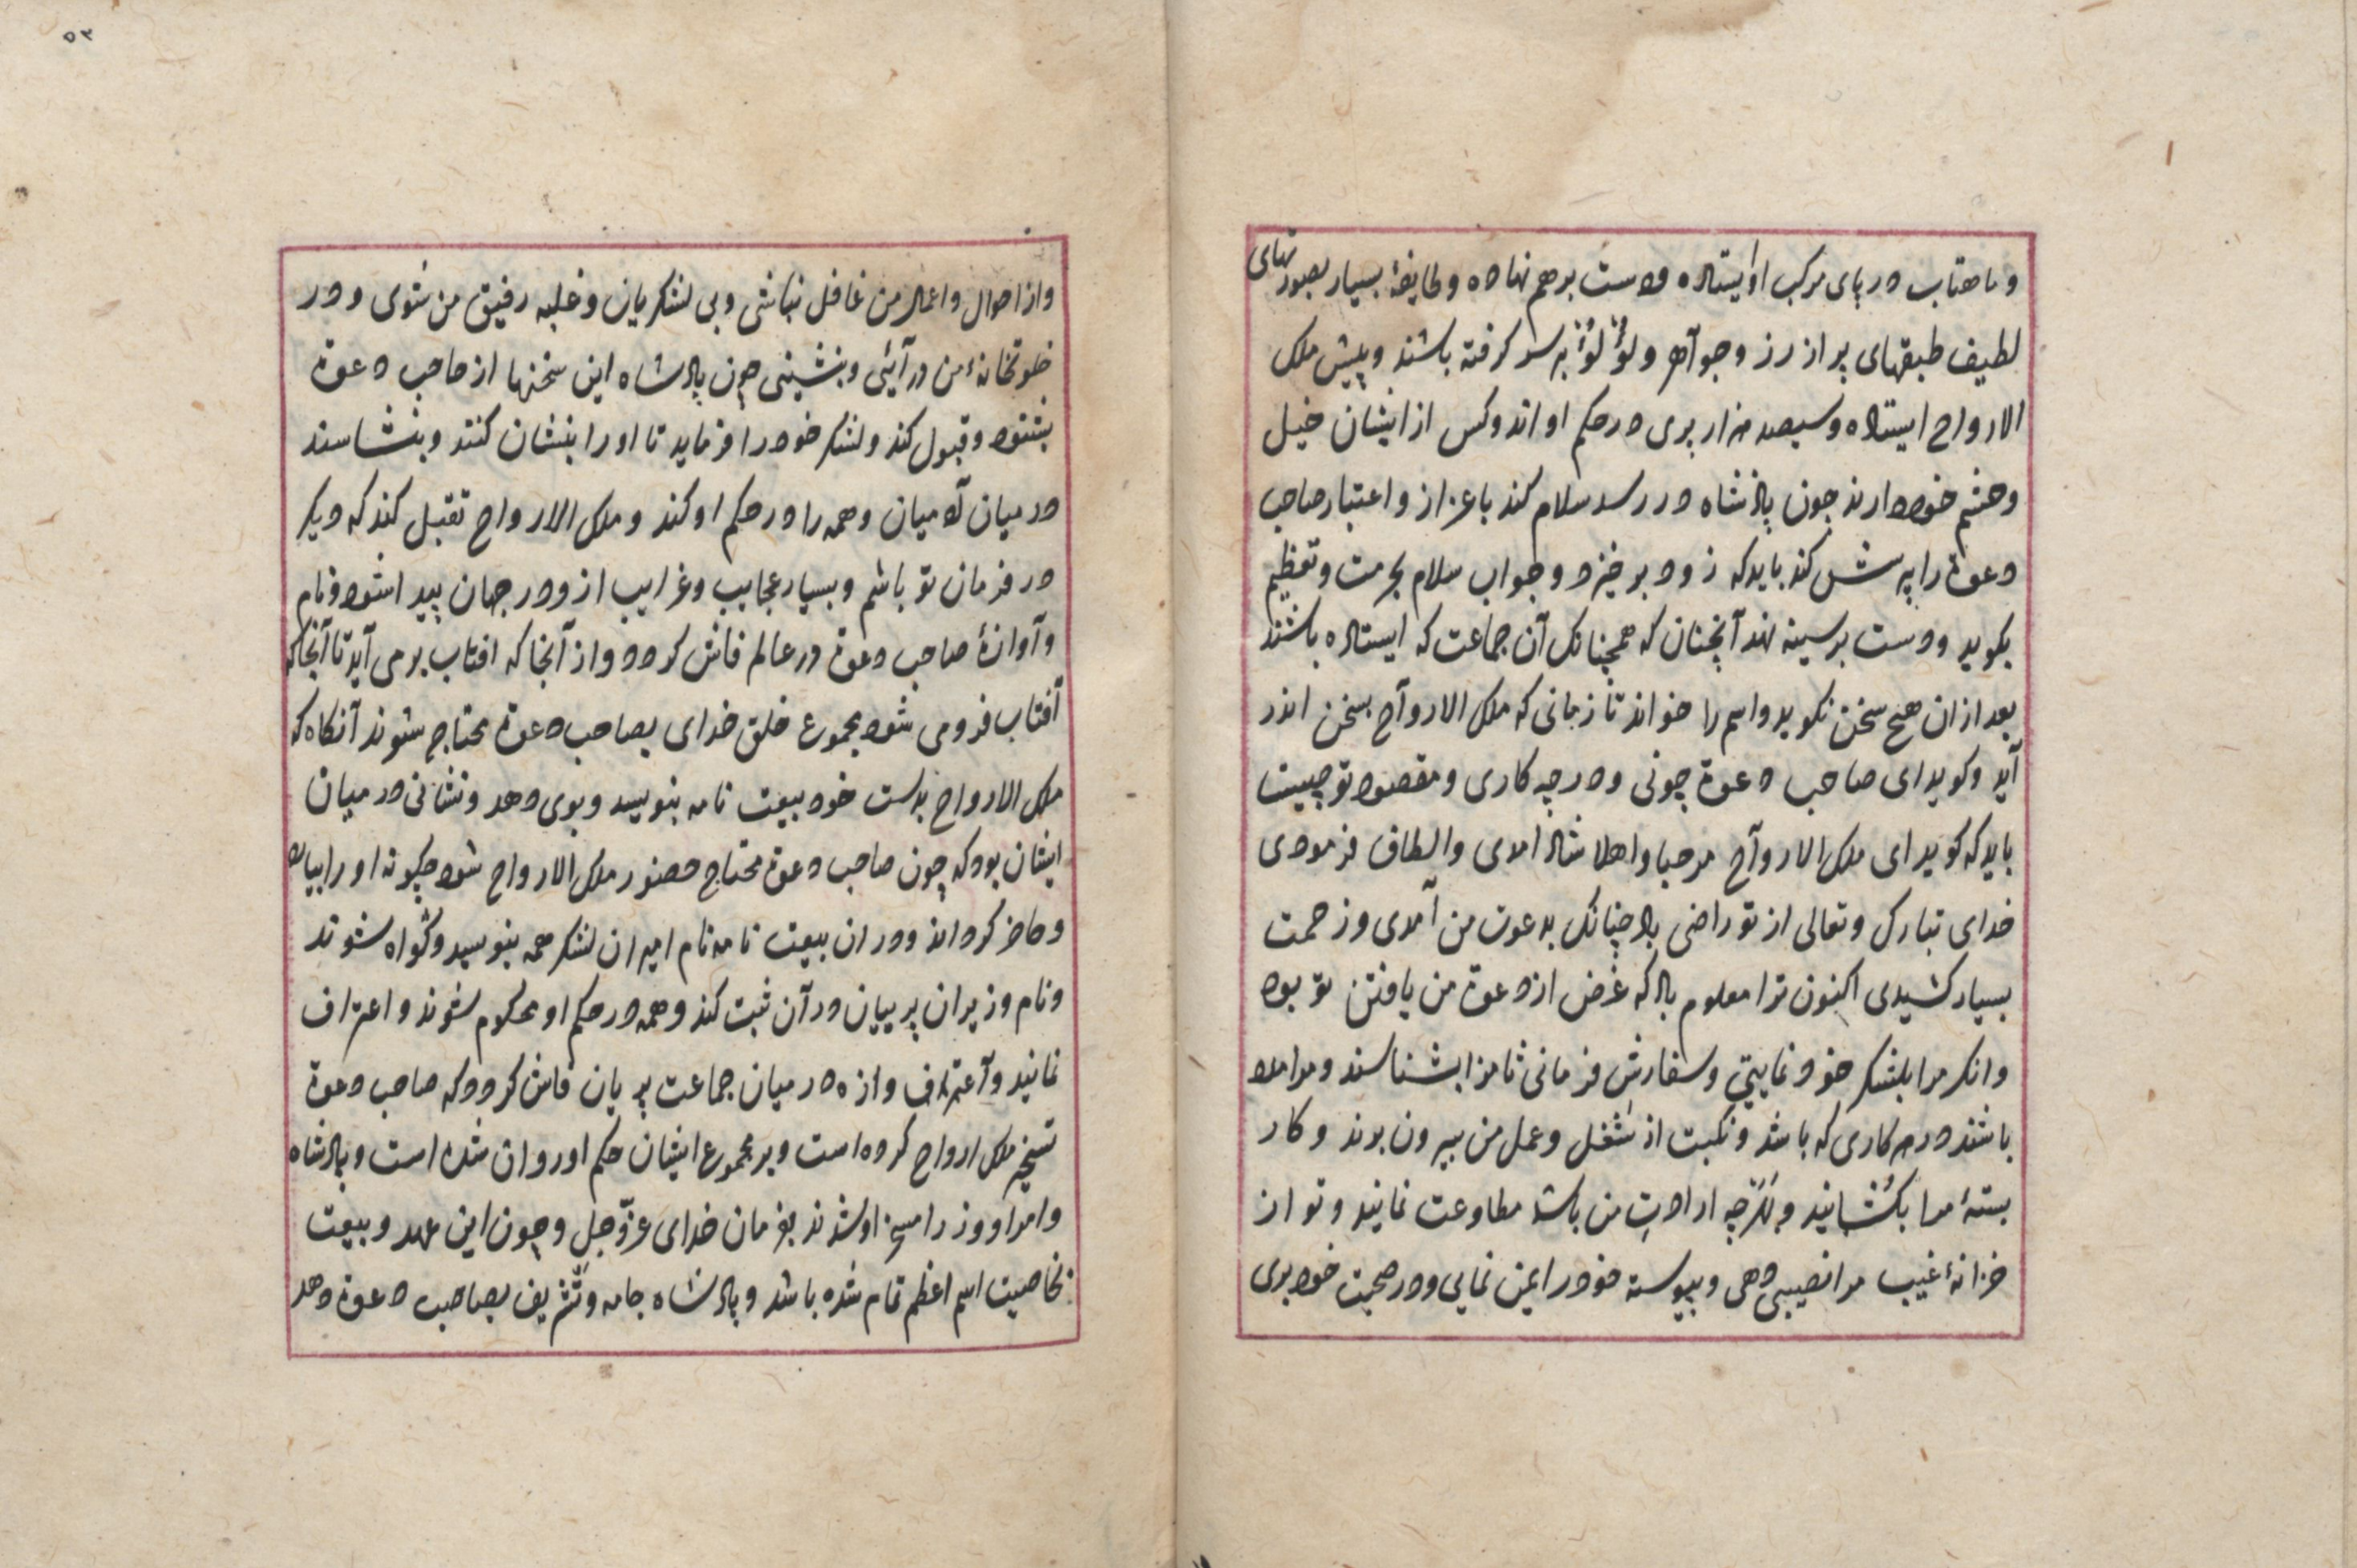 وماهتاب در پای مرکب او ایستاده ودست برهم نهاده وطایفهٔ بسیار بصورتهای
لطیف طبقهای پر از زر وجوآهر ولؤلؤ بر سر کرفته باشند وپیش ملک
الارواح ایستاده وسیصد هزار پری در حکم او اند وکس از ایشان خیل
وحشم خود دارند چون پادشاه در رسد سلام کند باعزاز واعتبار صاحب
دعوة را پرسش کند باید که زود برخیزد وجواب سلام بحرمت وتعظیم
بکوید ودست برسینه نهد آنچنان که همچنانک آن جماعت که ایستاده باشند
بعد ازان هیچ سخن نکوید واسم را خواند تا زمانی که ملک الاروآح بسخن اندر
آید وکوید ای صاحب دعوة چونی ودر چه کاری ومقصود تو چیست
باید که کوید ای ملک الاروآح مرحبا واهلا شاد امدی والطاف فرمودی
خدای تبارک وتعالی از تو راضی باد چنانک بدعوت من آمدی وزحمت
بسیار کشیدی اکنون ترا معلوم باد که غرض از دعوة من یافتن تو بود
وانکر مرا بلشکر خود نمایی وسفارش فرمانی تا مرا بشناسند ومرا مدد
باشند در هر کاری که باشد ونکبت از شغل وعمل من بیرون برند وکار
بستهٔ مرا بکشانید وهرچه ارادت من باشد مطاوعت نمایند وتو از
خزانهٔ غیب مرا نصیبی دهی وپیوسته خود را یمن نمایی ودر صحبت خود بری
۵۲
واز احوال واعمال من غافل نباشی وبی لشکریان وغلبه رفیق من شوی ودر
خلوتخانهٔ من درآیئی وبنشینی چون پادشاه این سخنها از صاحب دعوة
بشنود وقبول کند ولشکر خود را فرماید تا او را بنشان کنند وبشناسند
در میان آدمیان وهمه را در حکم او کند وملک الارواح تقبل کند که دیکر
در فرمان تو باشم وبسیار عجایب وغرایب از و در جهان پیدا شود ونام
وآوازهٔ صاحب دعوة در عالم فاش کردد واز آنجا که افتاب برمی آید تا آنجا که
آفتاب فرومی شود مجموع خلق خدای بصاحب دعوة محتاج شوند آنکاه که
ملک الارواح بدست خود بیعت نامه بنویسد وبوی دهد ونشانی در میان
ایشان بود که چون صاحب دعوة محتاج حضور ملک الارواح شود چکونه او را بیابد
وحاضر کرداند ودران بیعت نامه نام امیران لشکر همه بنویسد وکواه شوند
ونام وزیران پریان در آن ثبت کند وهمه در حکم او محکوم شوند واعتراف
نمانید وآعتراف وازه در میان جماعت پریان فاش کردد که صاحب دعوة
تسخیر ملک ارواح کرده است وبر مجموع ایشان حکم او روان شده است وپادشاه
وامرا ووزرا مسخر او شدند بفرمان خدای عزّوجل وچون این عهد وبیعت
بخاصیت اسم اعظم تمام شده باشد وپادشاه جامه وتشریف بصاحب دعوة دهد